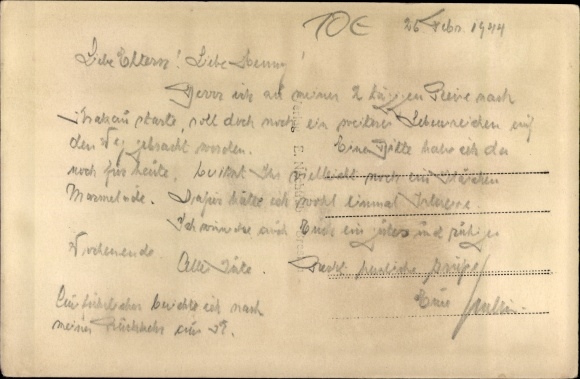 TOE 26. Febr. 1944
Liebe Eltern! Liebe Henny!
Bevor ich zu meiner 2 tägigen Reise nach
Krakau starte, soll doch noch ein weiteres Lebenszeichen auf
den Weg gebracht werden. Eine Bitte habe ich da
noch für heute, besitzt Ihr vielleicht noch ein bischen
Marmelade. Dafür hätte ich wohl einmal Interesse.
Ich wünsche auch Euch ein gutes und ruhiges
Wochenende. Alles Gute. Recht herzliche Grüße
Euer
Ausführlicher berichte ich nach
meiner Rückkehr aus